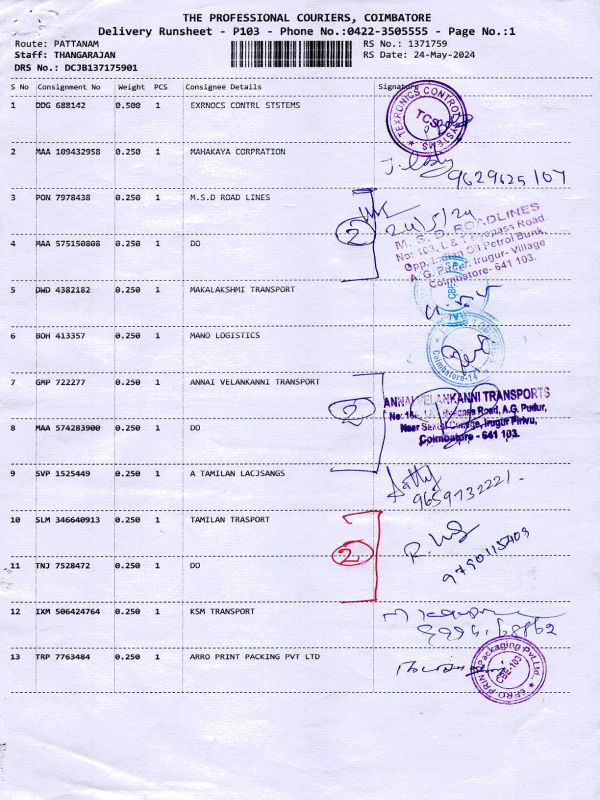 THE PROFESSIONAL COURIERS, COIMBATORE
Delivery Runsheet - P103 - Phone No.:0422-3505555 - Page No.:1
Route: PATTANAM RS No.: 1371759
Staff: THANGARAJAN RS Date: 24-May-2024
DRS No.: DCJB137175901
S No Consignment No Weight PCS Consignee Details Signature
1 DDG 688142 0.500 1 EXRNOCS CONTRL STSTEMS
TEXRONICS CONTROL SYSTEMS
TCS
2 MAA 109432958 0.250 1 MAHAKAYA CORPRATION
9629625107
3 PON 7978438 0.250 1 M.S.D ROAD LINES
24/5/24
2
M. S. D. ROADLINES
No: 103, L & T Bypass Road.
Opp. Indian Oil Petrol Bunk,
A. G. Pudur, Irugur- Village
Coimbatore- 641 103.
4 MAA 575150808 0.250 1 DO
5 DWD 4382182 0.250 1 MAKALAKSHMI TRANSPORT
6 BOH 413357 0.250 1 MANO LOGISTICS
Coimbatore-14
7 GMP 722277 0.250 1 ANNAI VELANKANNI TRANSPORT
2
ANNAI VELANKANNI TRANSPORTS
Bypass Road, A.G. Pudur,
Irugur Pirivu,
Coimbatore - 641 103.
8 MAA 574283900 0.250 1 DO
9 SVP 1525449 0.250 1 A TAMILAN LACJSANGS
9659732221.
10 SLM 346640913 0.250 1 TAMILAN TRASPORT
2
9790115409
11 TNJ 7528472 0.250 1 DO
12 IXM 506424764 0.250 1 KSM TRANSPORT
13 TRP 7763484 0.250 1 ARRO PRINT PACKING PVT LTD
Packaging Pvt.Ltd.,
CBE-103